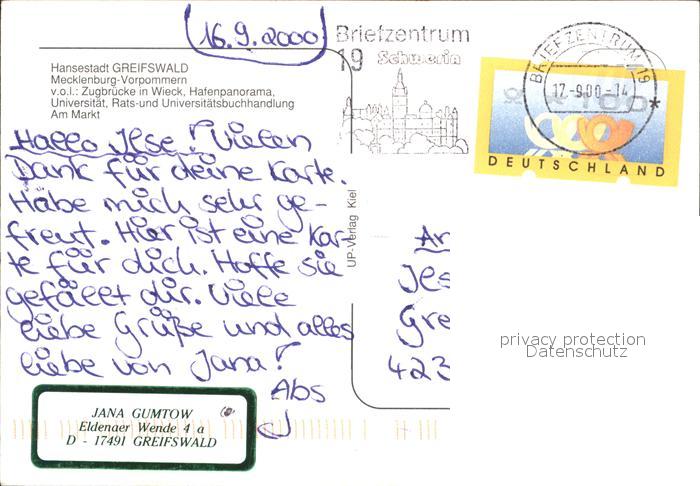 16.9.2000
Briefzentrum
19 Schwerin
BRIEFZENTRUM 19
17.-9.00-14
100*
DEUTSCHLAND
Hansestadt GREIFSWALD
Mecklenburg-Vorpommern
v.o.l.: Zugbrücke in Wieck, Hafenpanorama,
Universität, Rats-und Universitätsbuchhandlung
Am Markt
Hallo Ilse! Vielen
Dank für deine Karte.
Habe mich sehr ge-
freut. Hier ist eine Kar-
te für dich. Hoffe sie
gefällt dir. Viele
liebe Grüße und alles
liebe von Jana!
Abs
UP-Verlag Kiel
An
Ils
Gre
423
privacy protection
Datenschutz
JANA GUMTOW
Eldenaer Wende 4 a
D - 17491 GREIFSWALD